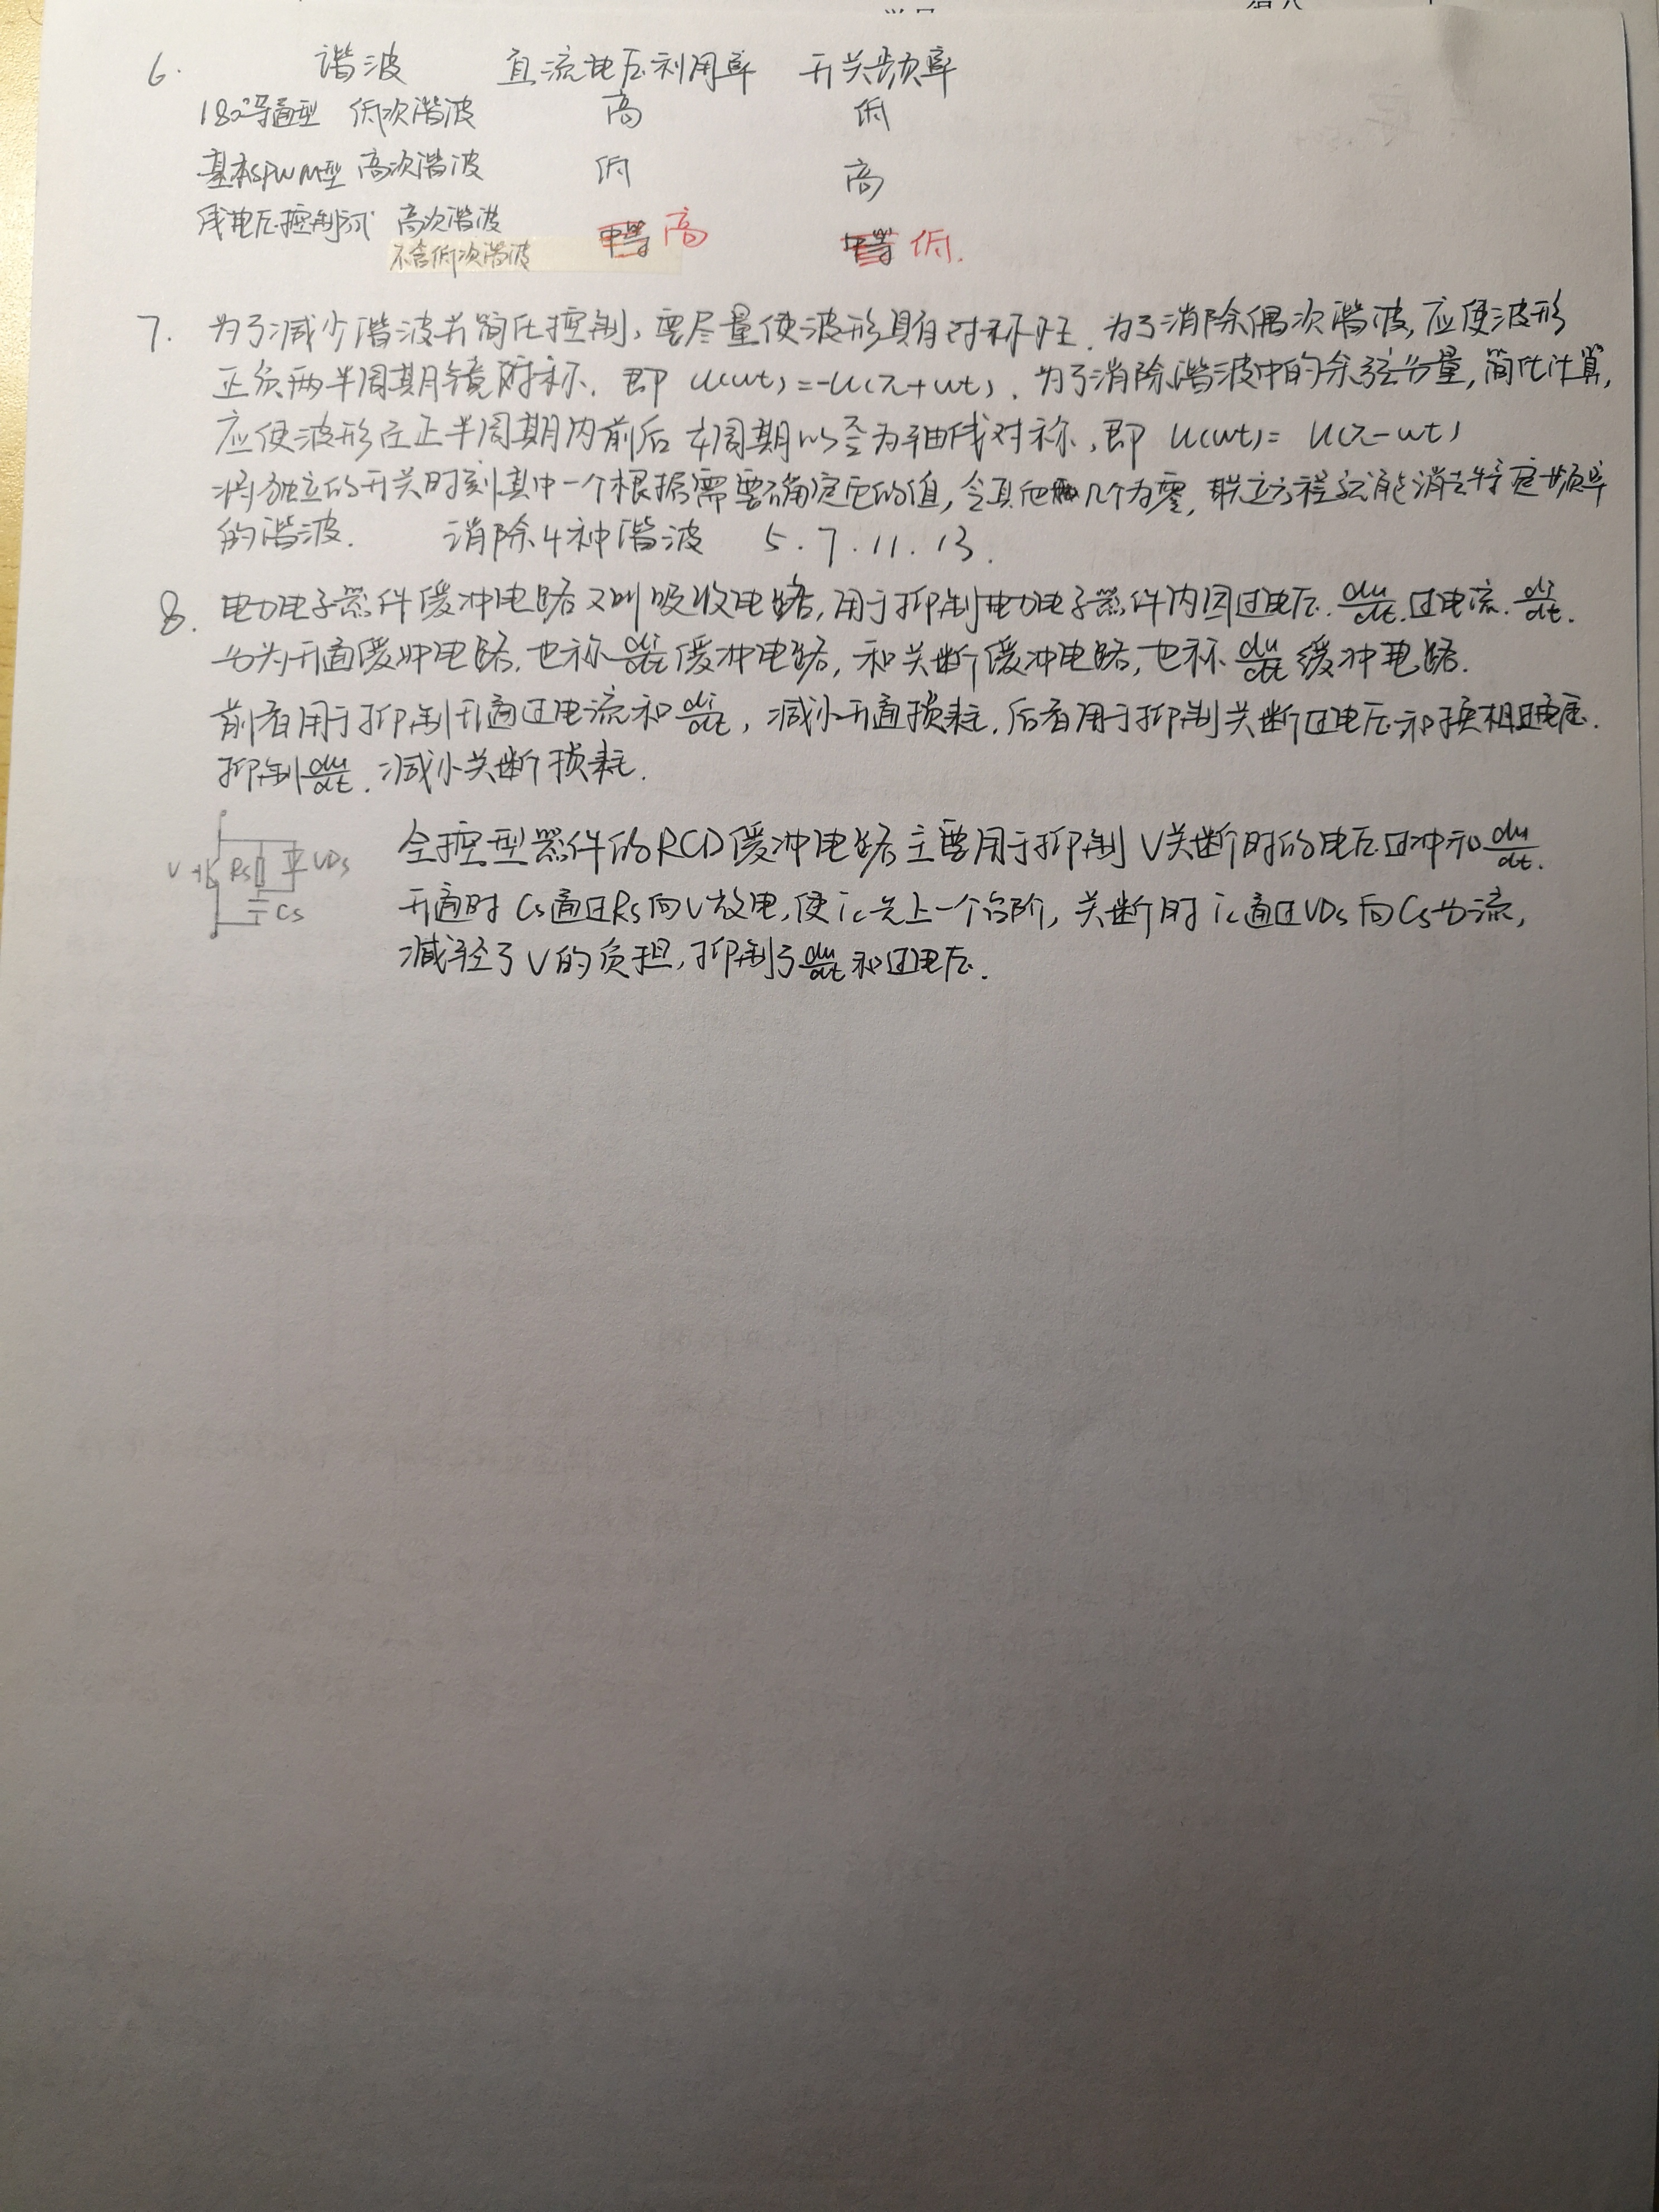 6. 谐波 直流电压利用率 开关频率
180°导通型 低次谐波 高 低
基本SPWM型 高次谐波 低 高
线电压控制式 高次谐波 中等 高 中等 低.
不含低次谐波
7. 为了减少谐波并简化控制,要尽量使波形具有对称性.为了消除偶次谐波,应使波形
正负两半周期镜对称. 即 u(ωt)=-u(π+ωt). 为了消除谐波中的余弦分量,简化计算,
应使波形在正半周期内前后1/4周期以π/2为轴线对称,即 u(ωt)= u(π-ωt)
将独立的开关时刻其中一个根据需要确定它的值,令其他几个为零,联立方程就能消去特定频率
的谐波. 消除4种谐波 5.7.11.13.
8. 电力电子器件缓冲电路又叫吸收电路,用于抑制电力电子器件内因过电压.du/dt.过电流.di/dt.
分为开通缓冲电路,也称di/dt缓冲电路,和关断缓冲电路,也称du/dt缓冲电路.
前者用于抑制开通过电流和di/dt,减小开通损耗.后者用于抑制关断过电压和换相过电压.
抑制du/dt.减小关断损耗.
V Rs VDs
Cs
全控型器件的RCD缓冲电路主要用于抑制V关断时的电压过冲和du/dt.
开通时Cs通过Rs向V放电,使ic先上一个台阶,关断时ic通过VDs向Cs分流,
减轻了V的负担,抑制了du/dt和过电压.